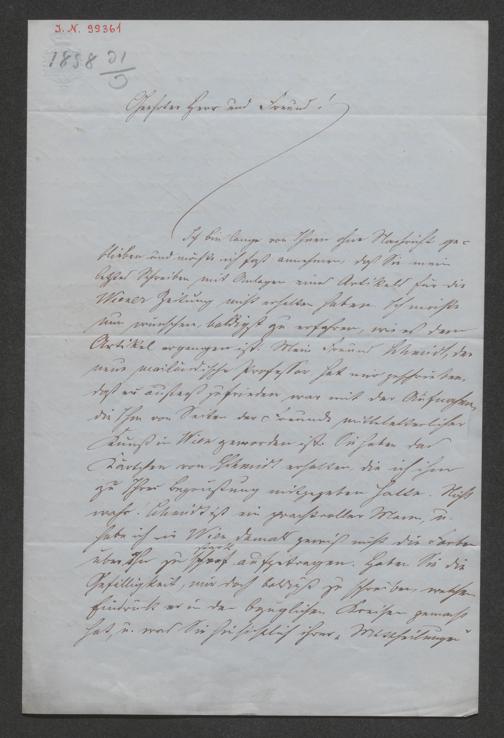 J. N. 99361
1858
Geehrter Herr und Freund!
Ich bin lange von Ihnen ohne Nachricht ge-
blieben und möchte ich fast annehmen, daß Sie mein
letztes Schreiben mit Anlagen eines Artikels für die
Wiener Zeitung nicht erhalten haben. Ich möchte
nun wünschen baldigst zu erfahren, wie es dem
Artikel ergangen ist. Mein Freund Schmidt, der
neue mailändische Professor hat mir geschrieben,
daß er äußerst zufrieden war mit der Aufnahme,
die Ihm von Seiten der Freunde mittelalterlicher
Kunst in Wien geworden ist. Sie haben das
Kärtchen von Schmidt erhalten, die ich ihm
zu Ihrer Begrüßung mitgegeben hatte. Nicht
wahr, Schmidt ist ein prachtvoller Mann, u.
habe ich in Wien damals gewiß nicht die Farben
über Ihn zu stark aufgetragen. Haben Sie die
Gefälligkeit, mir doch baldigst zu schreiben, welchen
Eindruck er in den bezüglichen Kreisen gemacht
hat, u. was Sie hinsichtlich ihrer „Mittheilungen"